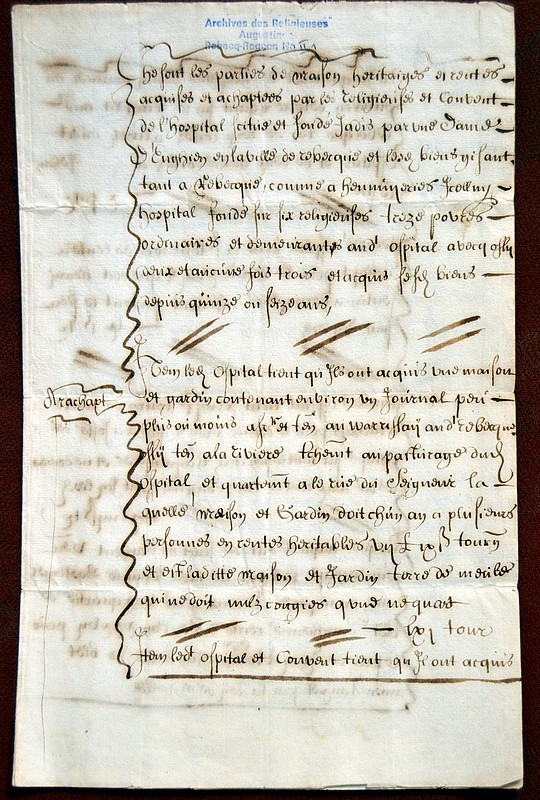 Archives des Religieuses
Augustines
Rebecq-Rognon No
Che sont les parties de maison heritaiges et rentes
acquises et achaptees par les religieuses et Couvent
de l'hospital scitue et fondé Jadis par une Dame
D'Enghien en la ville de rebecque et lesd biens gisant
tant a Rebecque, comme a hennuyeres Icelluy
hospital fondé sur six religieuses treze povres
ordinaires et demeurantes aud ospital avecq
deux et aucune fois trois et acquis lesd biens
depuis quinze ou seize ans,
Item led ospital tient qu'Ils ont acquis une maison
et gardin contenant environ un Journal peu
Arachapt
plus ou moins et ten au aud rebecque
ten a la riviere au pasturage dud
ospital et a le rue du Seigneur la
quelle maison et Gardin doit chun an a plusieurs
personnes en rentes heritables vii £ tourn
et est laditte maison et Jardin terre de
qui ne doit nulz congies q une
lxj tour
Item led ospital et Couvent tient qu'Il ont acquis